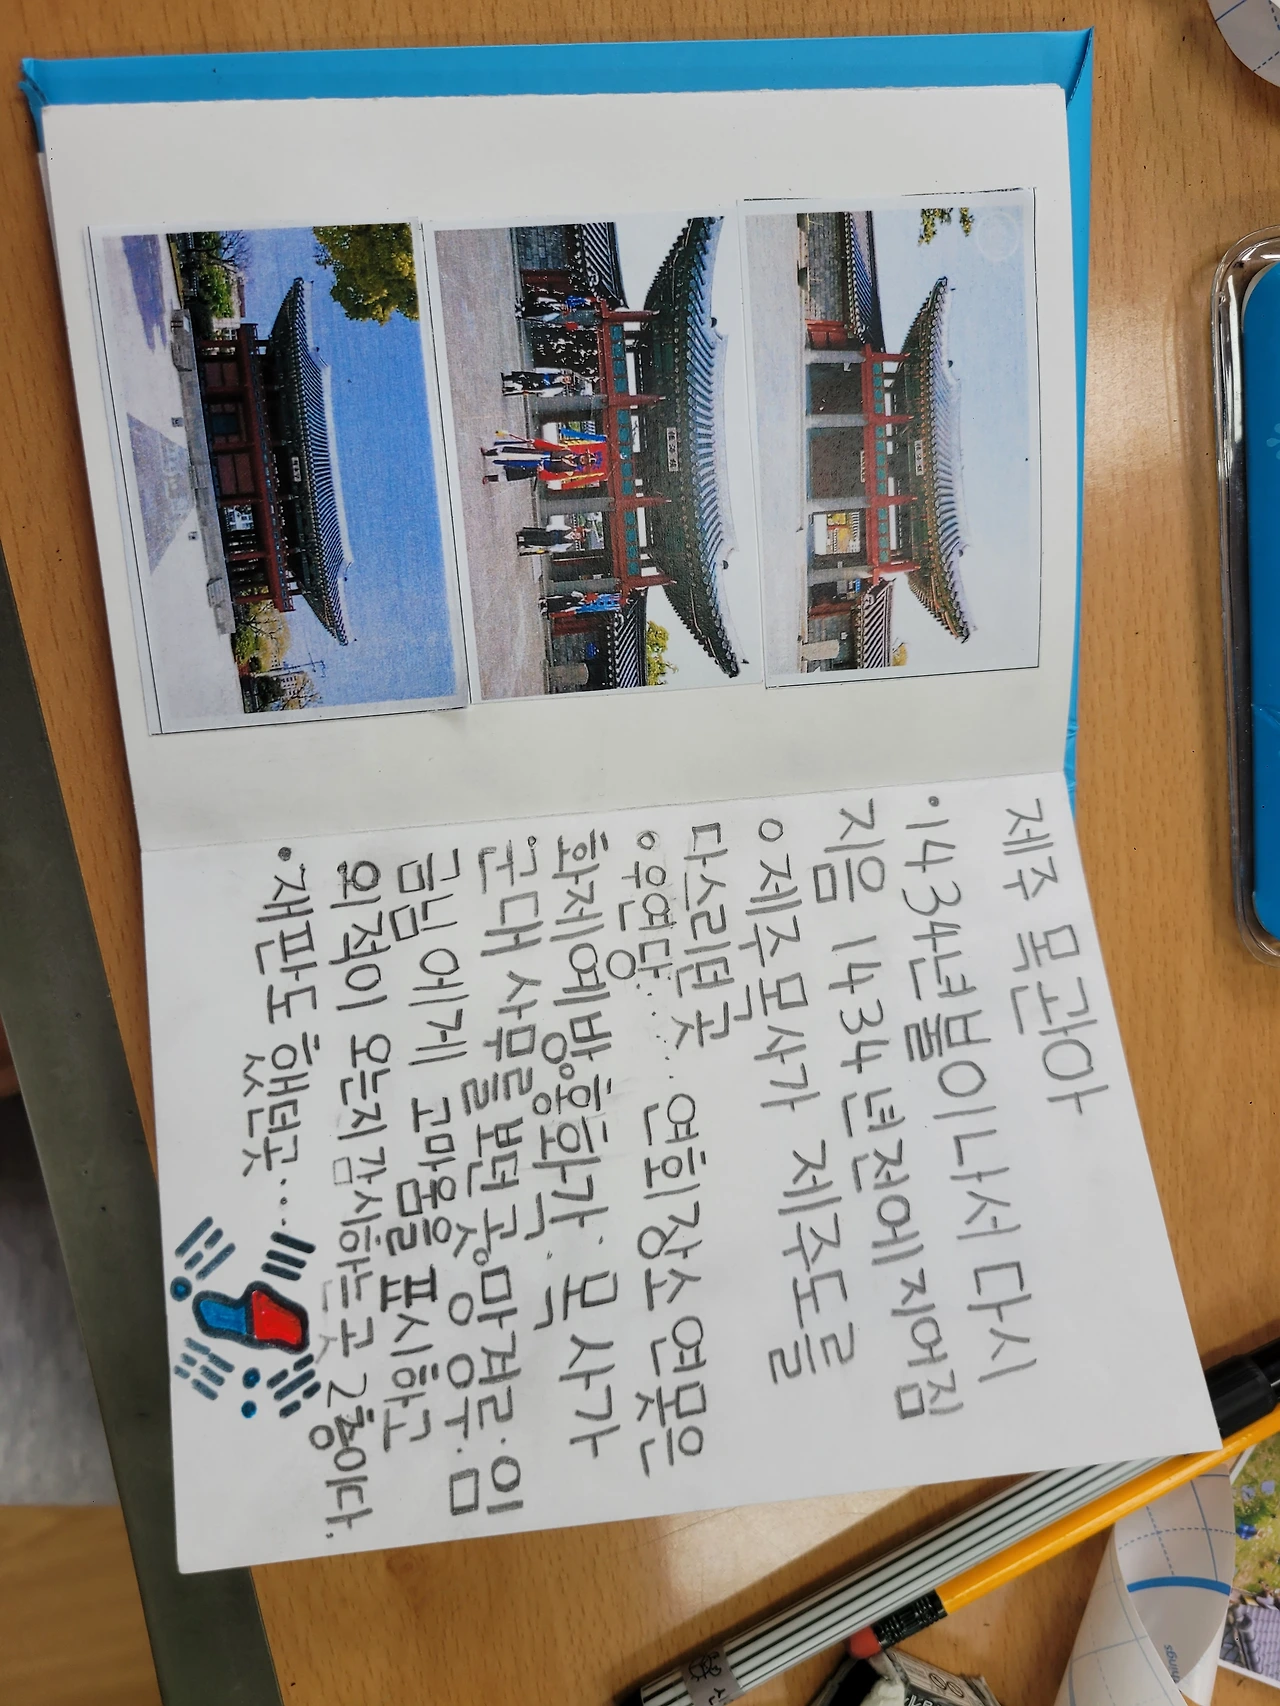 제주 목관아
•1434년불이나서 다시
지음 1434년전에지어짐
○제주모사가 제주도를
다스리떤곳
○우연당..... 연회장소 연못은
화제예방○홍화각. 목사가
군대 사무를보떤곳○망경루.임
금님에게 고마움을 표시하고
외적이 오는지감시하는곳 2층이다.
•재판도 했떤곳...